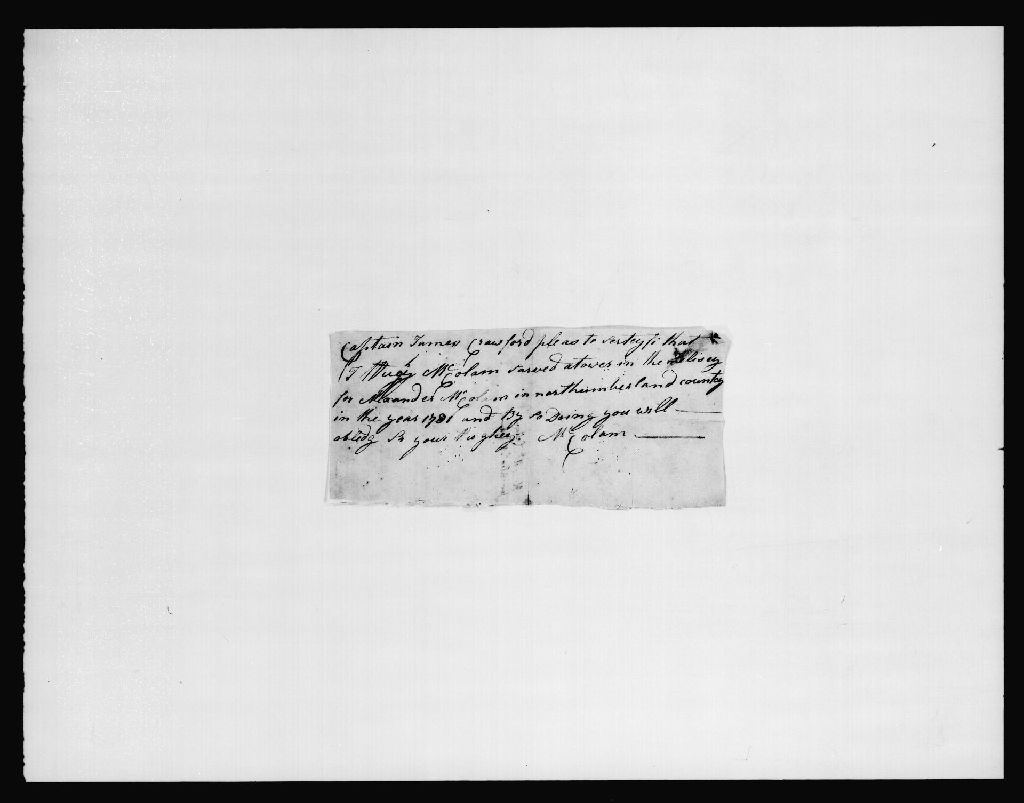 Captain James Crawford pleas to sertefi that
I Hugh McColam sarved atower in the
for Alexander McColam in northumberland county
in the year 1781 and By So Doing you will
obledg Sr your Hughey McColam